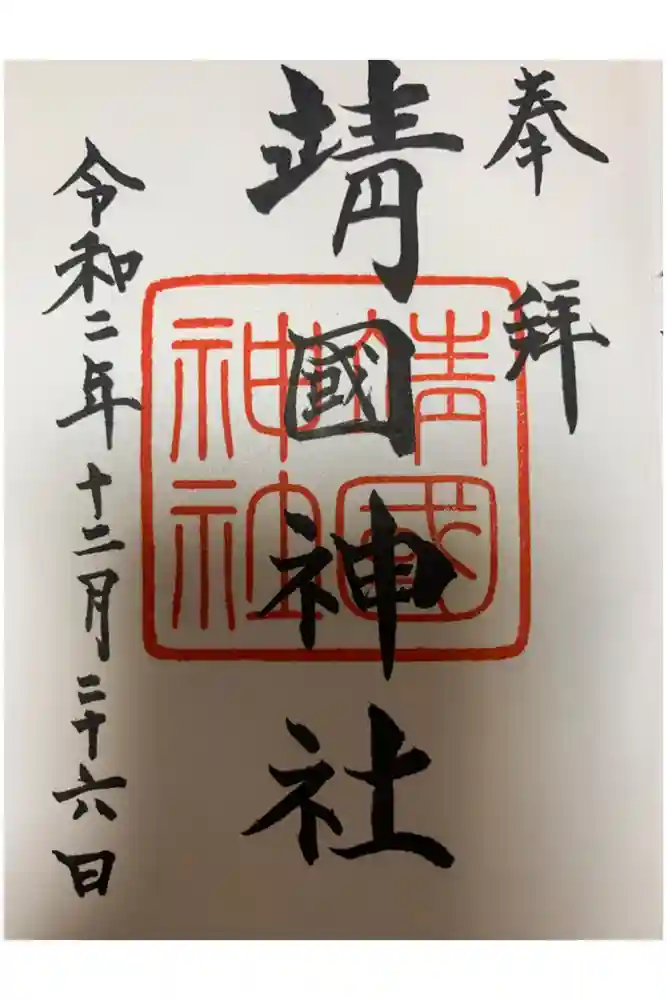 奉拝
靖國神社
靖國
神社
令和二年十二月二十六日